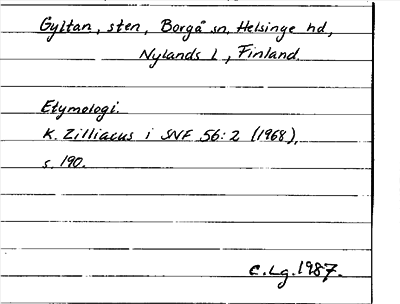 Gyltan, sten, Borgå sn, Helsinge hd,
Nylands l, Finland.
Etymologi.
K. Zilliacus i SNF 56:2 (1968),
s. 190.
C.Lg. 1987.